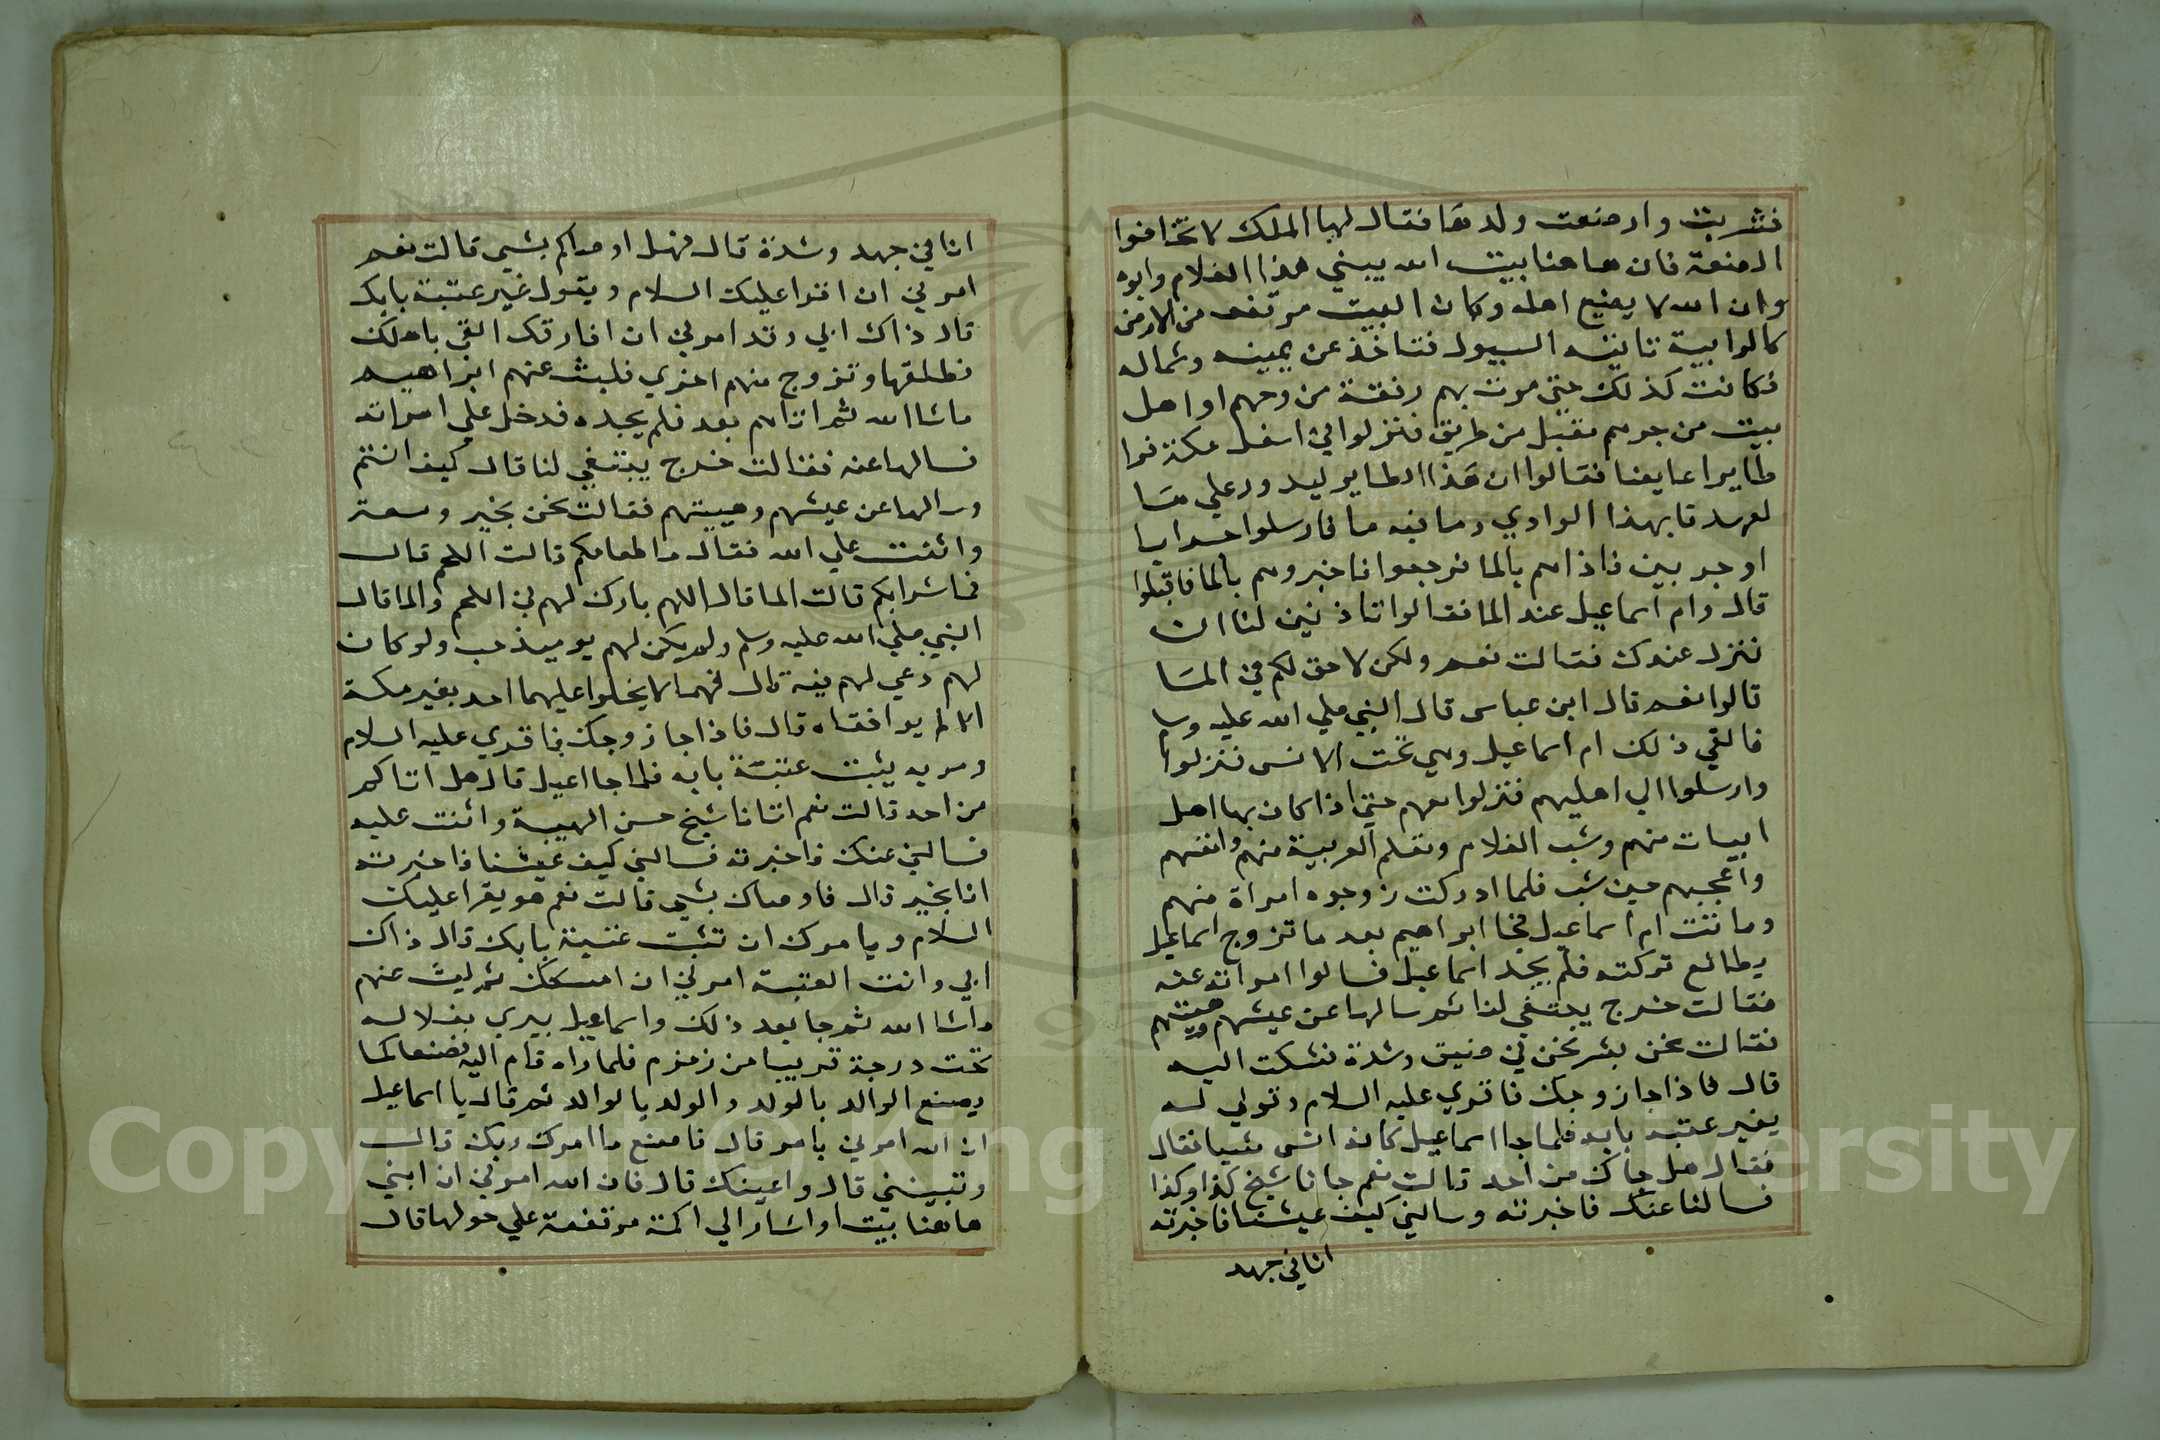 فشربت وارضعت ولدها فقال لها الملك لا تخافوا
الضيعة فان هاهنا بيت الله يبني هذا الغلام وابوه
وان الله لا يضيع اهله وكان البيت مرتفعا من الارض
كالرابية تاتيه السيول فتاخذ عن يمينه وشماله
فكانت كذلك حتى مرت بهم رفقة من جرهم او اهل
بيت من جرهم مقبل من طريق فنزلوا في اسفل مكة فراوا
طايرا عايفا فقالوا ان هذا الطاير ليدور علي ما
لعهدنا بهذا الوادي وما فيه ما فارسلوا جريا
او جريين فاذاهم بالما فرجعوا فاخبروهم بالما فاقبلوا
قال وام اسماعيل عند الما فقالوا اتاذنين لنا ان
ننزل عندك فقالت نعم ولكن لا حق لكم في الما
قالوا نعم قال ابن عباس قال النبي صلي الله عليه وسلم
فالفي ذلك ام اسماعيل وهي تحب الانس فنزلوا
وارسلوا الي اهليهم فنزلوا معهم حتى اذا كان بها اهل
ابيات منهم وشب الغلام وتعلم العربية منهم وانفسهم
واعجبهم حين شب فلما ادركت زوجوه امراة منهم
وماتت ام اسماعيل فجا ابراهيم بعد ما تزوج اسماعيل
يطالع تركته فلم يجد اسماعيل فسالوا امراته عنه
فقالت خرج يبتغي لنا ثم سالها عن عيشهم وهيتهم
فقالت نحن بشر نحن في ضيق وشدة فشكت اليه
قال فاذا جا زوجك فاقري عليه السلام وقولي له
يغير عتبة بابه فلما جا اسماعيل كانه انس شييا فقال
فقال هل جاك من احد قالت نعم جانا شيخ كذا وكذا
فسالنا عنك فاخبرته وسالني كيف عيشنا فاخبرته
انا في جهد
انا في جهد وشدة قال فهل اوصاكم بشي قالت نعم
امرني ان اقرا عليك السلام ويقول غير عتبة بابك
قال ذاك ابي وقد امرني ان افارقك القي باهلك
فطلقها وتزوج منهم اخري فلبث عنهم ابراهيم
ماشاالله ثم اتاهم بعد فلم يجده فدخل علي امراته
فسالها عنه فقالت خرج يبتغي لنا قال كيف انتم
وسالها عن عيشهم وهيتهم فقالت نحن بخير وسعة
واثنت علي الله فقال ما طعامكم قالت اللحم قال
فما شرابكم قالت الما قال اللهم بارك لهم في اللحم والما قال
النبي صلي الله عليه وسلم ولم يكن لهم يوميذ حب ولو كان
لهم دعي لهم فيه قال فهما لا يخلوا عليهما احد بغير مكة
الا لم يوافقاه قال فاذا جا زوجك فاقري عليه السلام
ومريه يثبت عتبة بابه فلما جا اعيل قال هل اتاكم
من احد قالت نعم اتانا شيخ حسن الهيية واثنت عليه
فسالني عنك فاخبرته فسالني كيف عيشنا فاخبرته
انا بخير قال فاوصاك بشي قالت نعم هو يقرا عليك
السلام ويامرك ان تثبت عتبة بابك قال ذاك
ابي وانت العتبة امرني ان امسكك ثم لبث عنهم
ماشا الله ثم جا بعد ذلك واسماعيل يبري نبلا له
تحت درجة قريبا من زمزم فلما راه قام اليه فصنعا كما
يصنع الوالد بالولد والولد بالوالد ثم قال يا اسماعيل
ان الله امرني بامر قال فاصنع ما امرك ربك قال
وتعينني قال واعينك قال فان الله امرني ان ابني
هاهنا بيتا واشار الي اكمة مرتفعة علي حولها قال